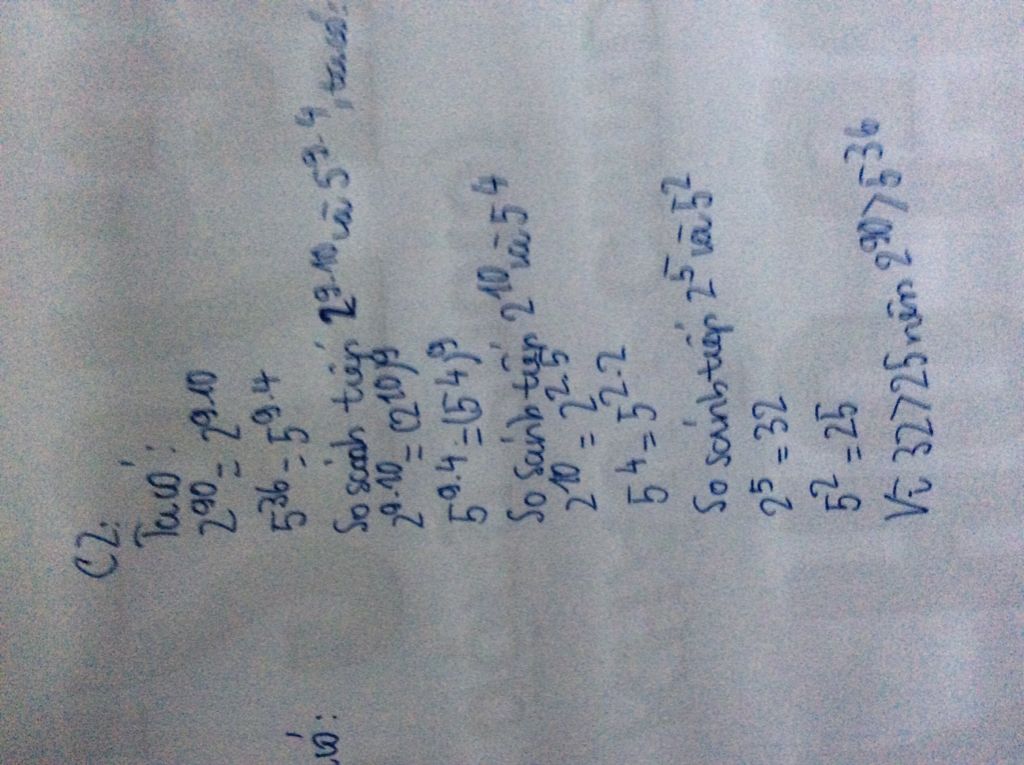 C2:
Ta có:
2^90 = 2^9.10
5^36 = 5^9.4
So sánh tiếp 2^9.10 và 5^9.4, ta có:
2^9.10 = (2^10)^9
5^9.4 = (5^4)^9
So sánh tiếp 2^10 và 5^4
2^10 = 2^2.5
5^4 = 5^2.2
So sánh tiếp 2^5 và 5^2
2^5 = 32
5^2 = 25
Vì 32 > 25 nên 2^90 > 5^36
có: